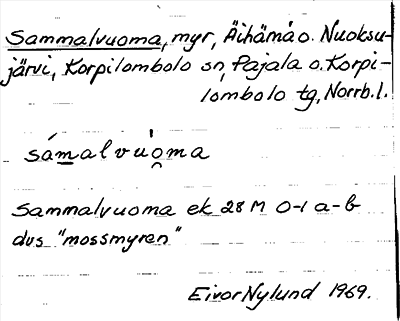 Sammalvuoma, myr, Äihämä o. Nuoksu-
järvi, Korpilombolo sn, Pajala o. Korpi-
lombolo tg, Norrb.l.
sámalvuoma
Sammalvuoma ek 28 M 0-1 a-b
dvs "mossmyren"
Eivor Nylund 1969.